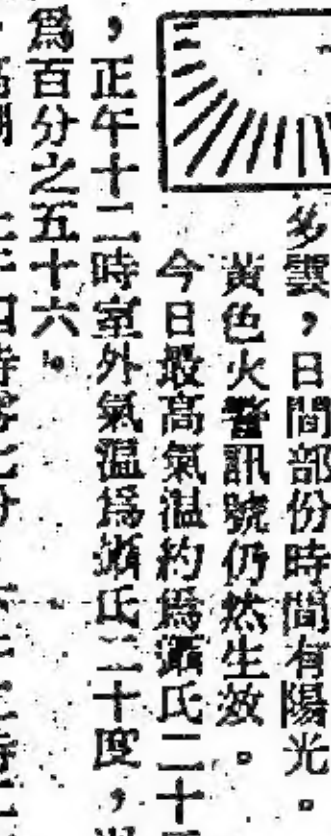 多雲，日間部份時間有陽光。
黃色火警訊號仍然生效。
今日最高氣温約爲攝氏二十
，正午十二時室外氣温爲攝氏二十度，
爲百分之五十六。